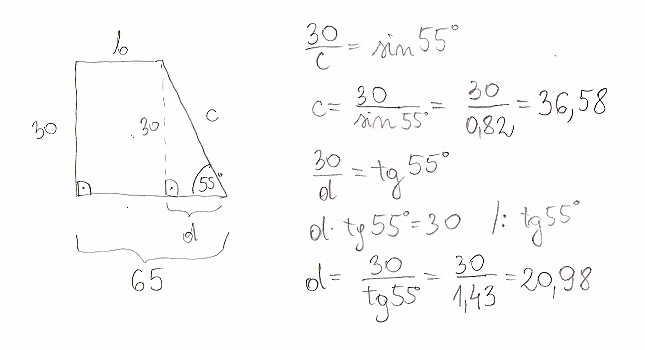 b
30
30
c
55°
d
65
30/c = sin 55°
c = 30/sin 55° = 30/0,82 = 36,58
30/d = tg 55°
d · tg 55° = 30 /: tg 55°
d = 30/tg 55 = 30/1,43 = 20,98